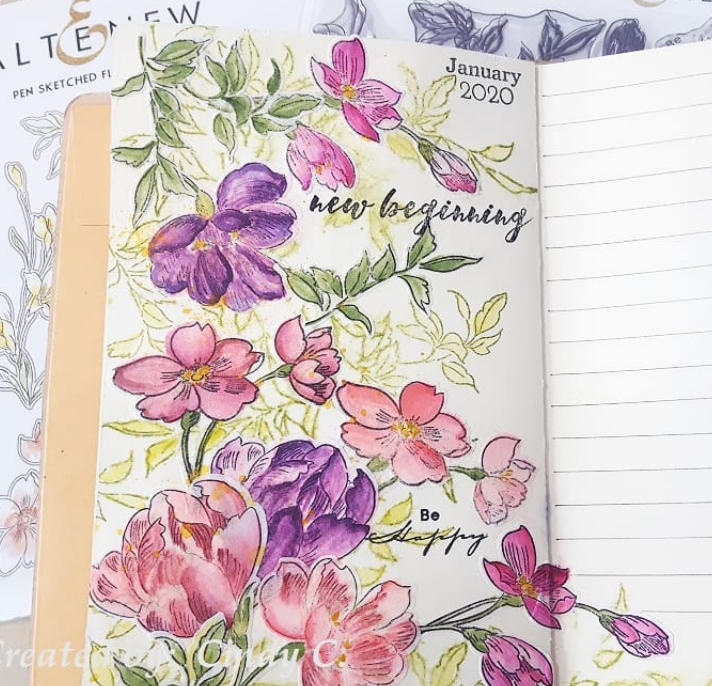 ALTENEW
PEN SKETCHED FL
January
2020
new beginning
Be
Happy
Created by Cindy C.